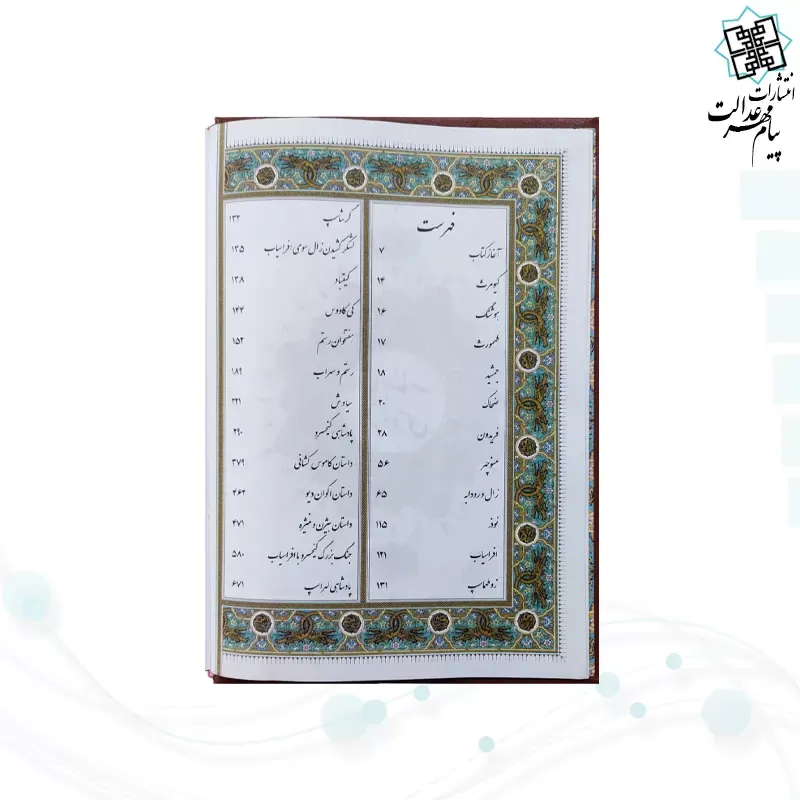 انتشارات
پیام مهر عدالت
فهرست
آغاز کتاب ۷
کیومرث ۱۴
هوشنگ ۱۶
طهمورث ۱۷
جمشید ۱۸
ضحاک ۲۰
فریدون ۲۸
منوچهر ۵۶
زال و رودابه ۶۵
نوذر ۱۱۵
افراسیاب ۱۲۱
زو طهماسپ ۱۳۱
گرشاسپ ۱۳۲
لشکر کشیدن زال سوی افراسیاب ۱۳۵
کیقباد ۱۳۸
کی کاووس ۱۴۴
هفتخوان رستم ۱۵۲
رستم و سهراب ۱۸۹
سیاوش ۲۲۱
پادشاهی کیخسرو ۲۹۰
داستان کاموس کشانی ۳۷۹
داستان اکوان دیو ۴۶۲
داستان بیژن و منیژه ۴۷۱
جنگ بزرگ کیخسرو با افراسیاب ۵۸۰
پادشاهی لهراسپ ۶۷۱